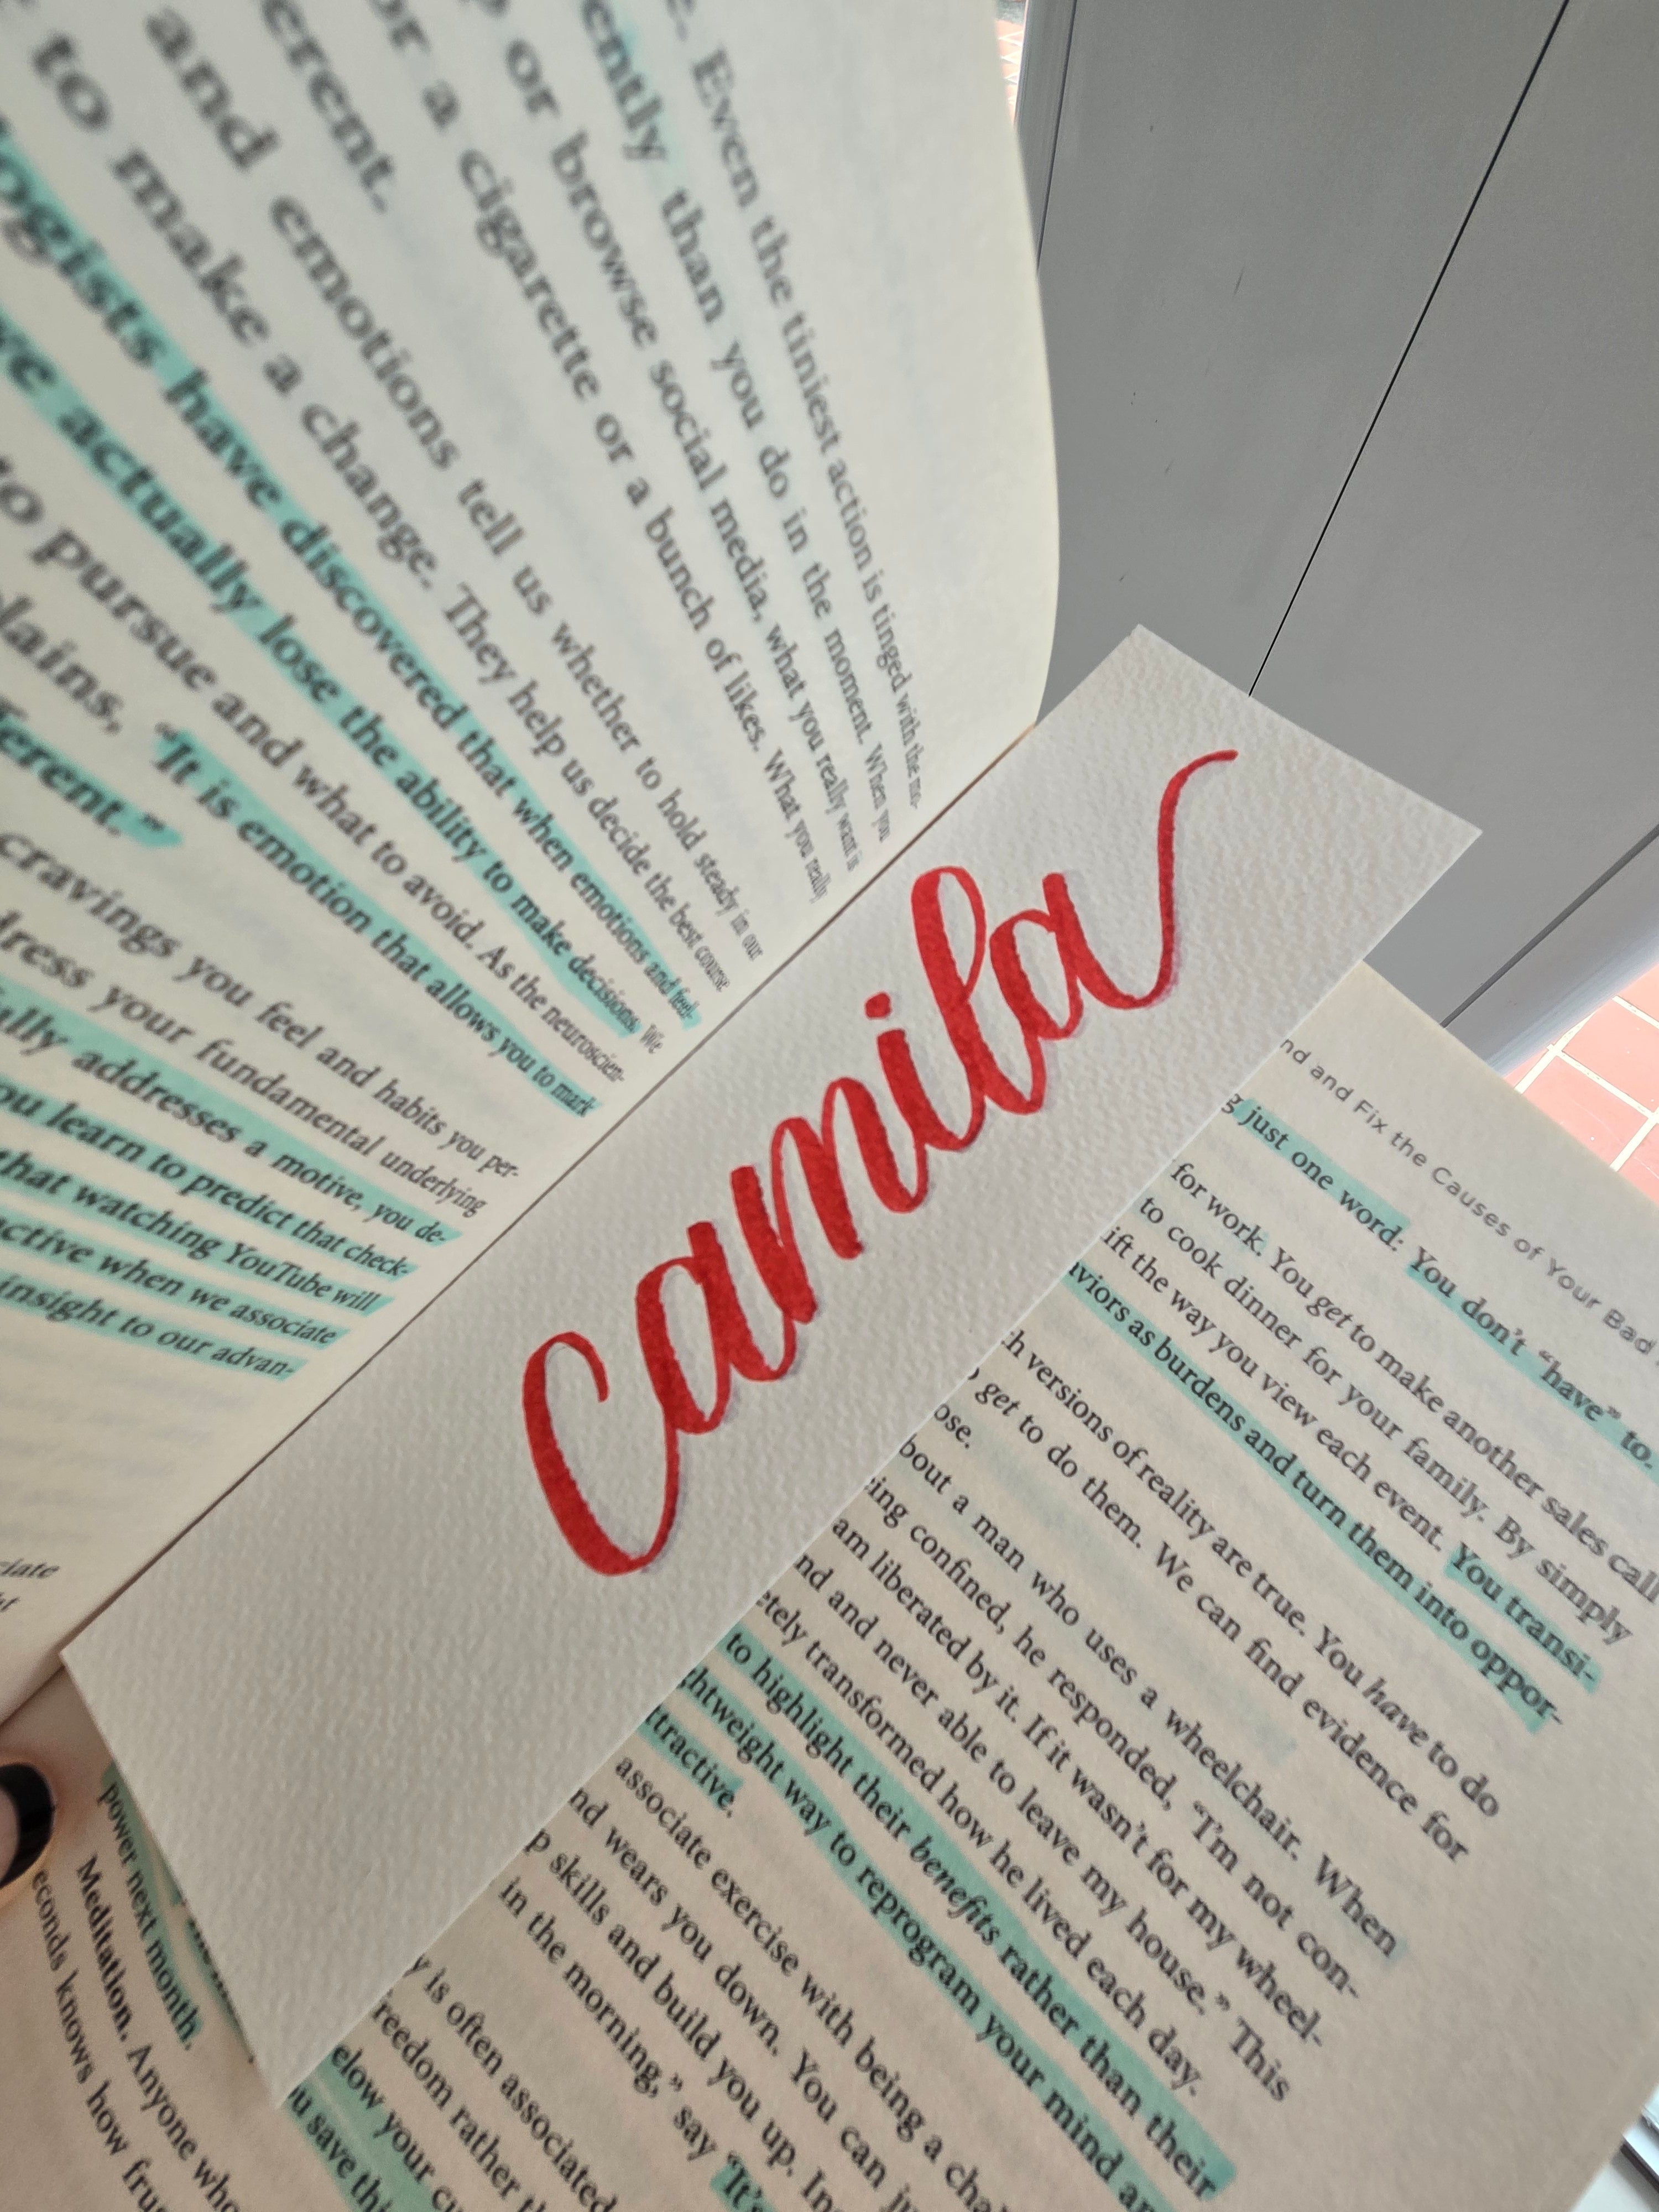 Even the tiniest action is tinged with the mo-
ently than you do in the moment. When you
or browse social media, what you really want is
or a cigarette or a bunch of likes. What you really
erent.
and emotions tell us whether to hold steady in our
to make a change. They help us decide the best course
ogists have discovered that when emotions and feel-
ve actually lose the ability to make decisions. We
to pursue and what to avoid. As the neuroscien-
plains, “It is emotion that allows you to mark
ferent.”
cravings you feel and habits you per-
dress your fundamental underlying
ally addresses a motive, you de-
ou learn to predict that check-
that watching YouTube will
active when we associate
insight to our advan-
ciate
camila
nd and Fix the Causes of Your Bad
g just one word: You don’t “have” to.
for work. You get to make another sales call
to cook dinner for your family. By simply
ift the way you view each event. You transi-
viors as burdens and turn them into oppor-
h versions of reality are true. You have to do
get to do them. We can find evidence for
ose.
bout a man who uses a wheelchair. When
ing confined, he responded, “I’m not con-
am liberated by it. If it wasn’t for my wheel-
nd and never able to leave my house.” This
etely transformed how he lived each day.
to highlight their benefits rather than their
ghtweight way to reprogram your mind an
ttractive.
associate exercise with being a chal
nd wears you down. You can ju
p skills and build you up. Ins
in the morning,” say “It’s
y is often associated
reedom rather th
elow your cu
u save thi
power next month.
Meditation. Anyone who
econds knows how frus